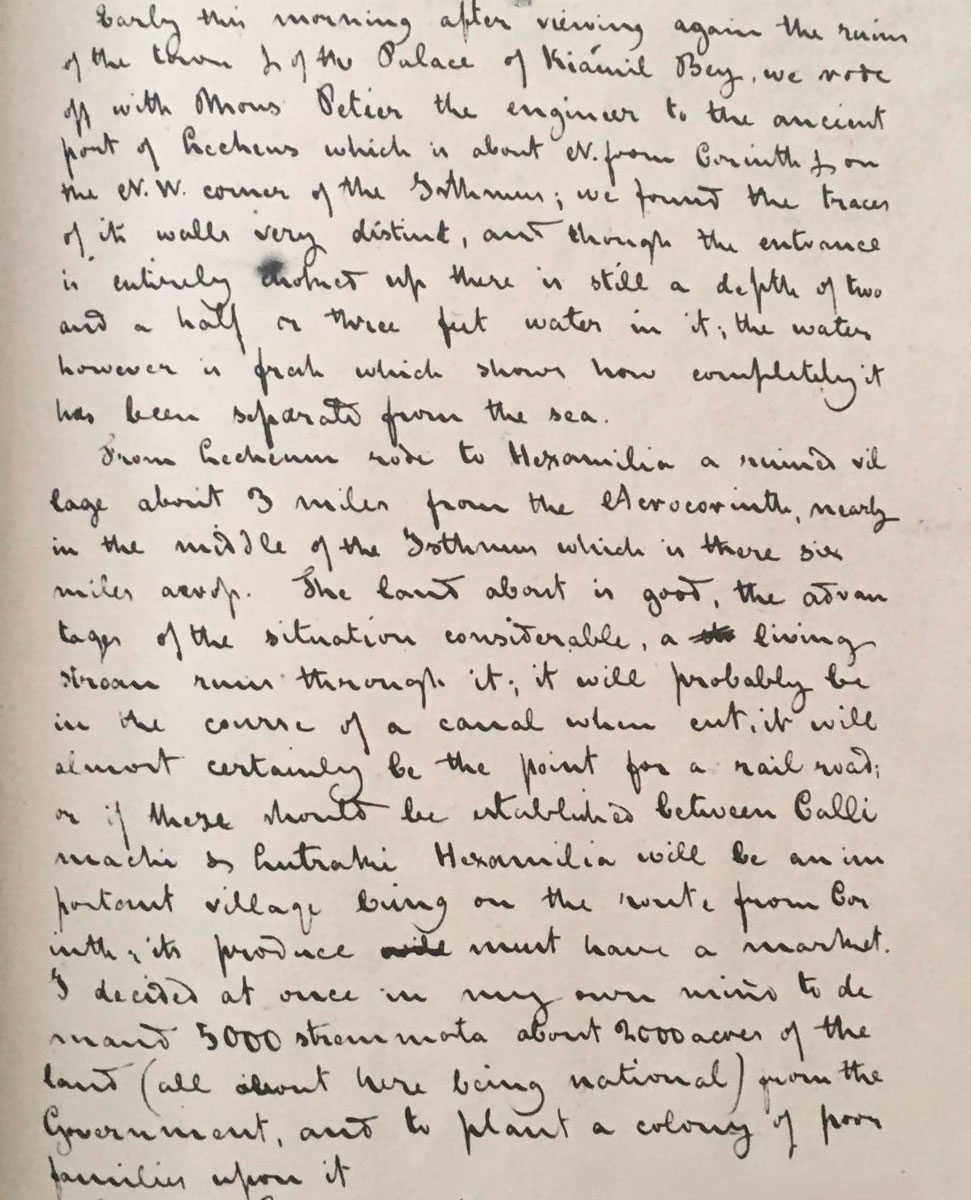 Early this morning after viewing again the ruins
of the town & of the Palace of Kiámil Bey, we rode
off with Mons Petier the engineer to the ancient
port of Lecheus which is about N. from Corinth & on
the N.W. corner of the Isthmus; we found the traces
of its walls very distinct, and though the entrance
is entirely choked up there is still a depth of two
and a half or three feet water in it; the water
however is fresh which shows how completely it
has been separated from the sea.
From Lecheum rode to Hexamilia a ruined vil
lage about 3 miles from the Acrocorinth, nearly
in the middle of the Isthmus which is there six
miles across. The land about is good, the advan
tages of the situation considerable, a living
stream runs through it; it will probably be
in the course of a canal when cut, it will
almost certainly be the point for a rail road;
or if these should be established between Calli
machi & Lutraki Hexamilia will be an im
portant village being on the route from Cor
inth; its produce must have a market.
I decided at once in my own mind to de
mand 5000 stremmata about 2000 acres of the
land (all about here being national) from the
Government, and to plant a colony of poor
families upon it